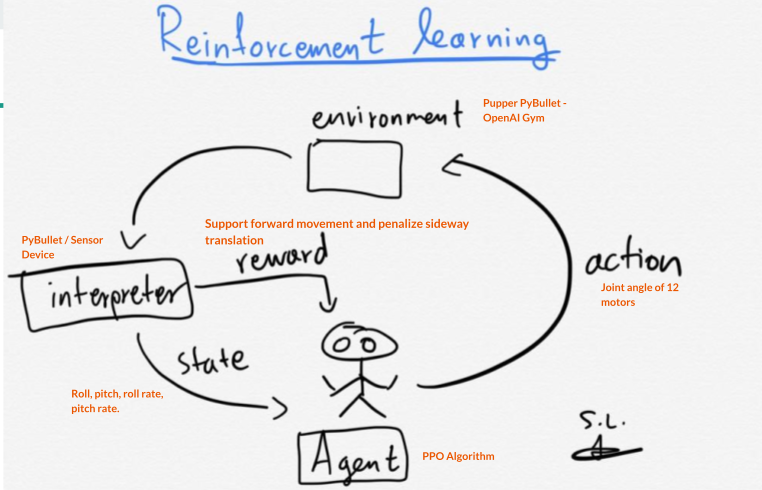 Reinforcement learning
environment
Pupper PyBullet -
OpenAI Gym
PyBullet / Sensor
Device
Support forward movement and penalize sideway
translation
reward
interpreter
action
Joint angle of 12
motors
state
Roll, pitch, roll rate,
pitch rate.
S.L.
Agent
PPO Algorithm